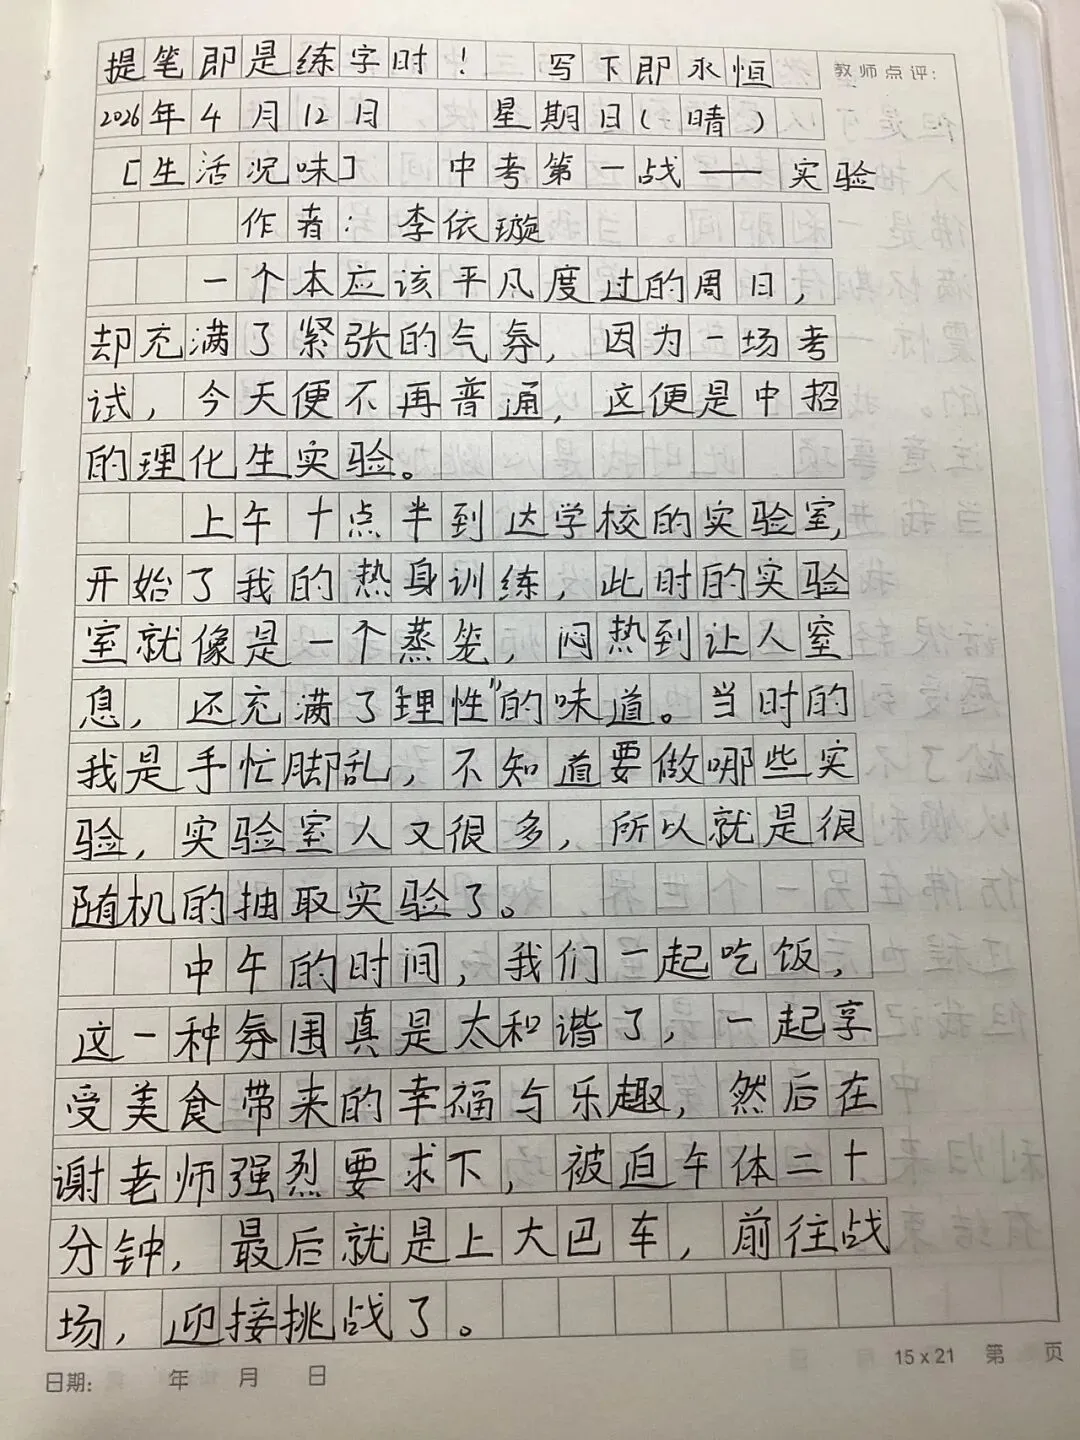 提笔即是练字时！ 写下即永恒 教师点评：
2026年4月12月 星期日（晴）
［生活况味］ 中考第一战——实验
作者：李依璇
一个本应该平凡度过的周日，
却充满了紧张的气氛，因为一场考
试，今天便不再普通，这便是中招
的理化生实验。
上午十点半到达学校的实验室，
开始了我的热身训练，此时的实验
室就像是一个蒸笼，闷热到让人窒
息，还充满了“理性”的味道。当时的
我是手忙脚乱，不知道要做哪些实
验，实验室人又很多，所以就是很
随机的抽取实验了。
中午的时间，我们一起吃饭，
这一种氛围真是太和谐了，一起享
受美食带来的幸福与乐趣，然后在
谢老师强烈要求下，被迫午体二十
分钟，最后就是上大巴车，前往战
场，迎接挑战了。
15×21 第 页
日期： 年 月 日